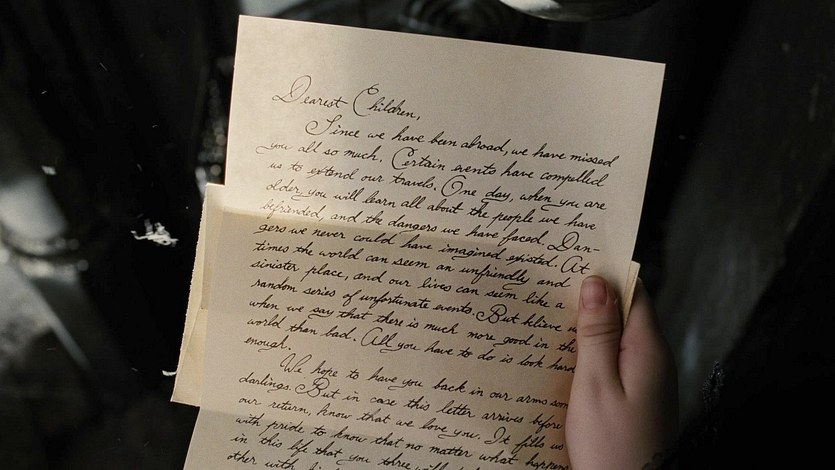 Dearest Children,
Since we have been abroad, we have missed
you all so much. Certain events have compelled
us to extend our travels. One day, when you are
older, you will learn all about the people we have
befriended, and the dangers we have faced. Dan-
gers we never could have imagined existed. At
times the world can seem an unfriendly and
sinister place, and our lives can seem like a
random series of unfortunate events. But believe
when we say that there is much more good in the
world than bad. All you have to do is look hard
enough.
We hope to have you back in our arms soon
darlings. But in case this letter arrives before
our return, know that we love you. It fills us
with pride to know that no matter what happens
in this life that you three will
other with